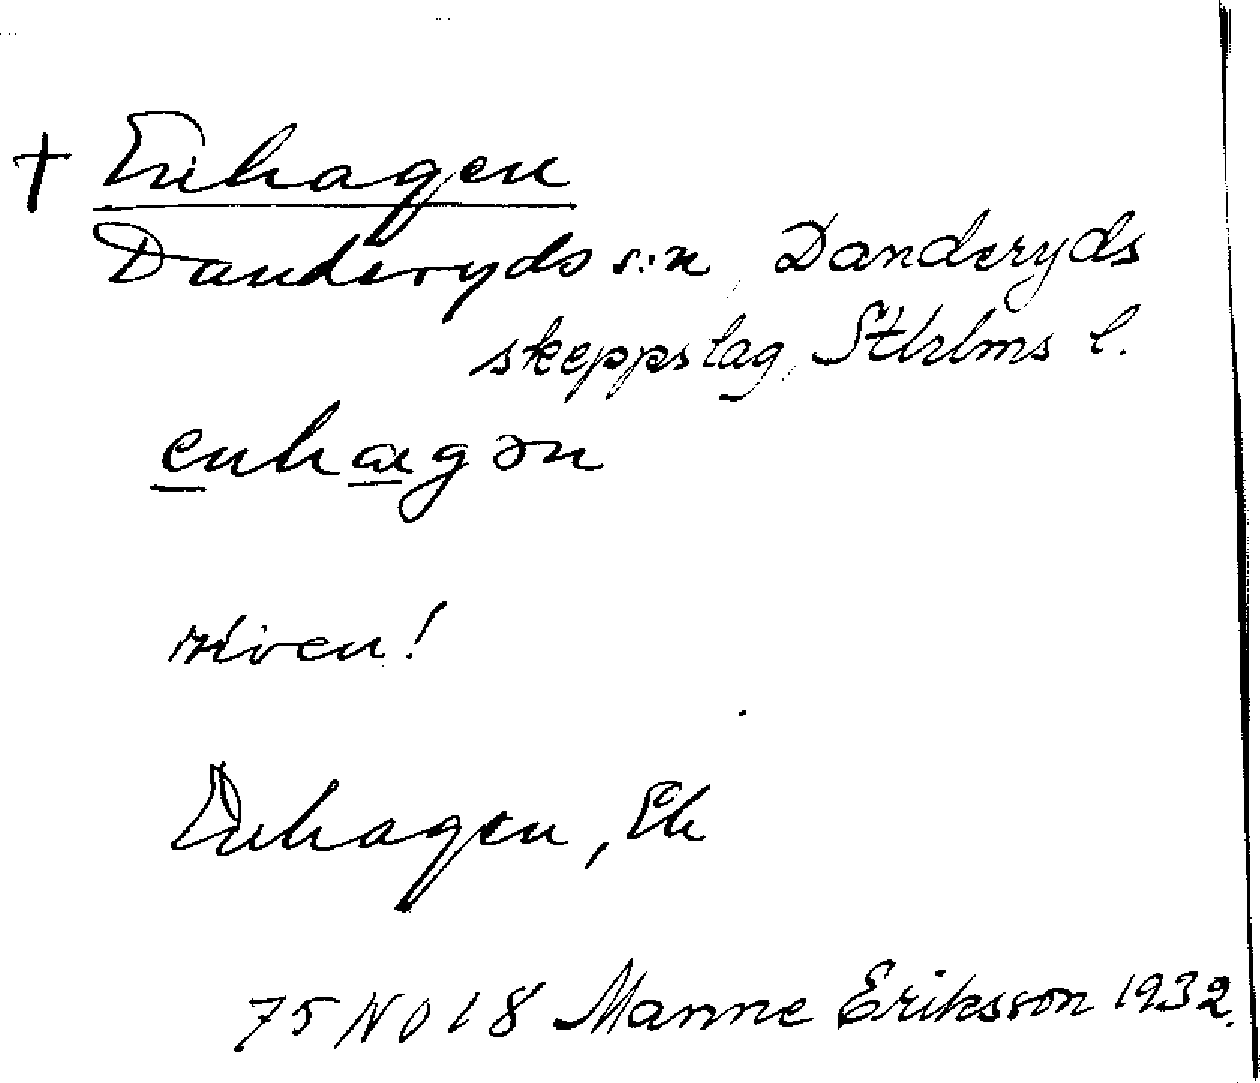 † Enhagen
Danderyds s:n, Danderyds
skeppslag, Sthlms l.
enhagən
riven!
Enhagen, Ek
75 NO 18 Manne Eriksson 1932.